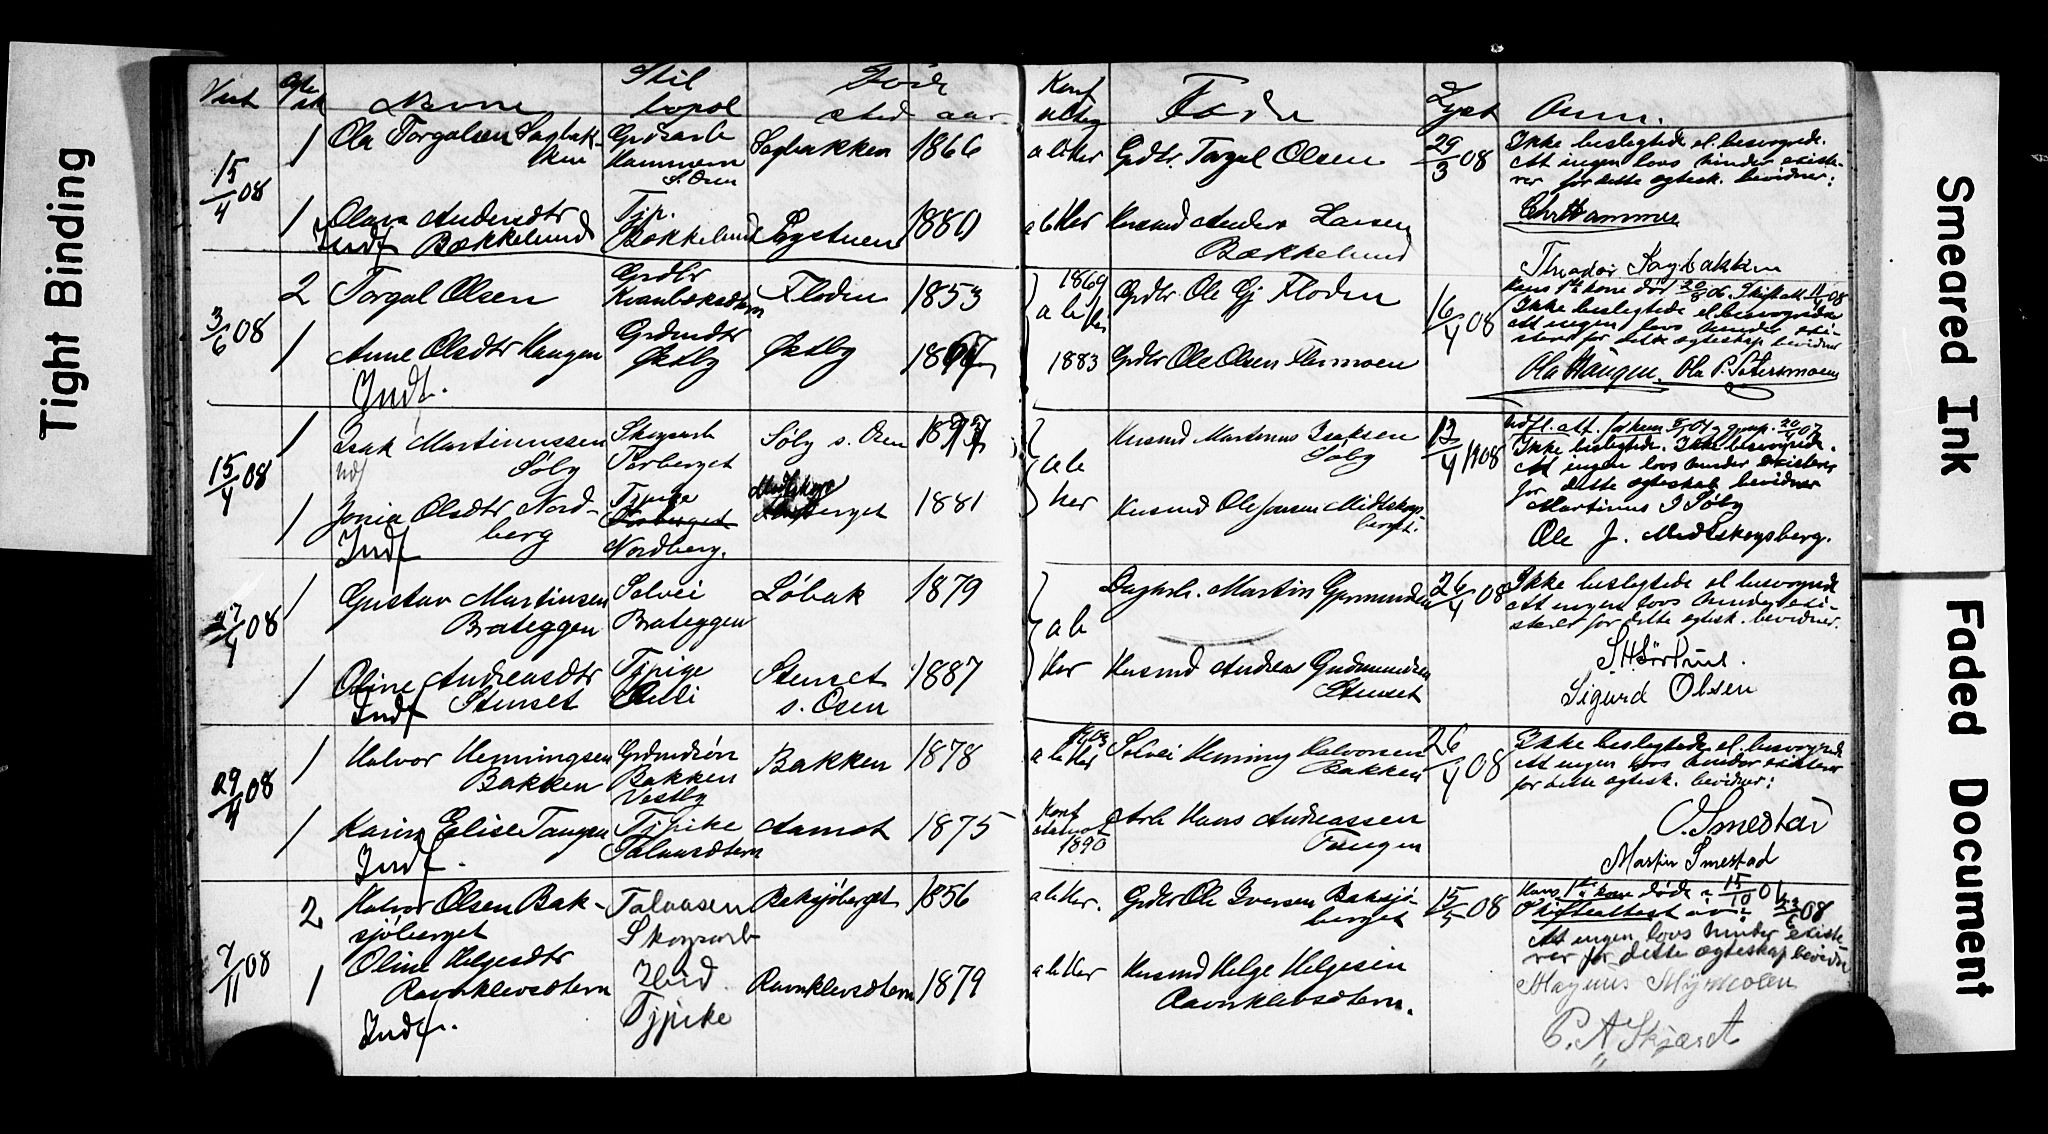 Tight Binding
Smeared Ink
Faded Document
Viet Egte sk Navne Stil bopæl Født sted aar Konf alteg Fadr Lyst Anm.
15/4 08
1 Ola Torgalsen Sagbak-
ken
Grdsarb
Hammeren
S. Osen
Sagbakken 1866
abHer Grdbr. Torgal Olsen
29/3 08
Ikke beslegtede el. besvogrede.
At ingen lovs hinder existe-
rer for dette egtesk. bevidner:
Chr Hammer
1 Olava Andersdtr
Indf Bækkelund
Tjp.
Bækkelund
1880
abHer Husmd Anders Larsen
Bækkelund
Theodor Sagbakken
3/6 08
2 Torgal Olsen
Grdbr
Floden 1853
1869
ab
Her
Grdbr. Ole Gj Floden
16/4 08
hans 1ste kone dør 20/8 06. Skifteatt. 11/4 08
Ikke beslegtede el. besvogrede
At ingen lovs hinder exi-
sterer for dette egteskap bevidner
1 Anne Olsdtr Haugen
Indf.
Grdmdtr
Østby
Østby 1867
1883 Grdbr Ole Olsen
Ola Haugen. Ola P. Sætersmoen
15/4 08
1 Isak Martinussen
Søby
Skogsarb
Torberget
Søby s. Osen 1877
ab
Her
Husmd Martinus Isaksen
Søby
12/4 1908
Ikke beslegtede. Ikke besvogrede.
At ingen lovs hinder existerer
for dette egteskab bevidner
Martinus I Søby
1 Jonia Olsdtr Nord-
berg
Indf
Tjpige
Torberget
Nordberg.
Midtskogs
berget 1881
Husmd Ole Jonsen Midtskogs-
berget.
Ole J. Midtskogsberg.
27/4 08
1 Gustav Martinsen
Brateggen
Selvei
Brateggen
Løbak 1879
ab
Her
Dagarb. Martin Gjermundsen
26/4 08
Ikke beslegtede el besvogrede
At ingen lovs hinder exi-
sterer for dette egtesk. bevidner.
1 Oline Andreasdtr
Indf Stenset
Tjpige
Stenset
s. Osen
1887
Husmd Andreas Gudmundsen
Stenset
Sigurd Olsen
29/4 08
1 Halvor Henningsen
Bakken
Grdmdsøn
Bakken
Vestby
Bakken 1878
abHer Selvei Henning Halvorsen
Bakken
26/4 08
Ikke beslegtede el. besvogrede
At ingen lovs hinder existerer
for dette egtesk. bevidner:
1 Karin Elise Tangen
Indf.
Tjpike
Talaassætern
Aamot 1875
Konf
Aamot
1890
Arb Hans Andreassen
Tangen
O. Smestad
Martin Smestad
7/11 08
2 Halvor Olsen Bak-
sjøberget
Talaasen
Skogsarb
Baksjøberget 1856
abHer. Grdbr Ole Iversen Baksjø-
berget
15/5 08
Hans 1ste kone døde 15/10 06
Skifteattest av 23/6 08
At ingen lovs hinder existe-
rer for dette egteskap bevidner
1 Oline Helgesdtr
Ravnklevsætern
Indf.
Ibid.
Tjpike
Ravnklevsætern 1879
abHer Husmd Helge Helgesen
Ravnklevsætern.
Magnus Myrmoen
P. A Skjæret